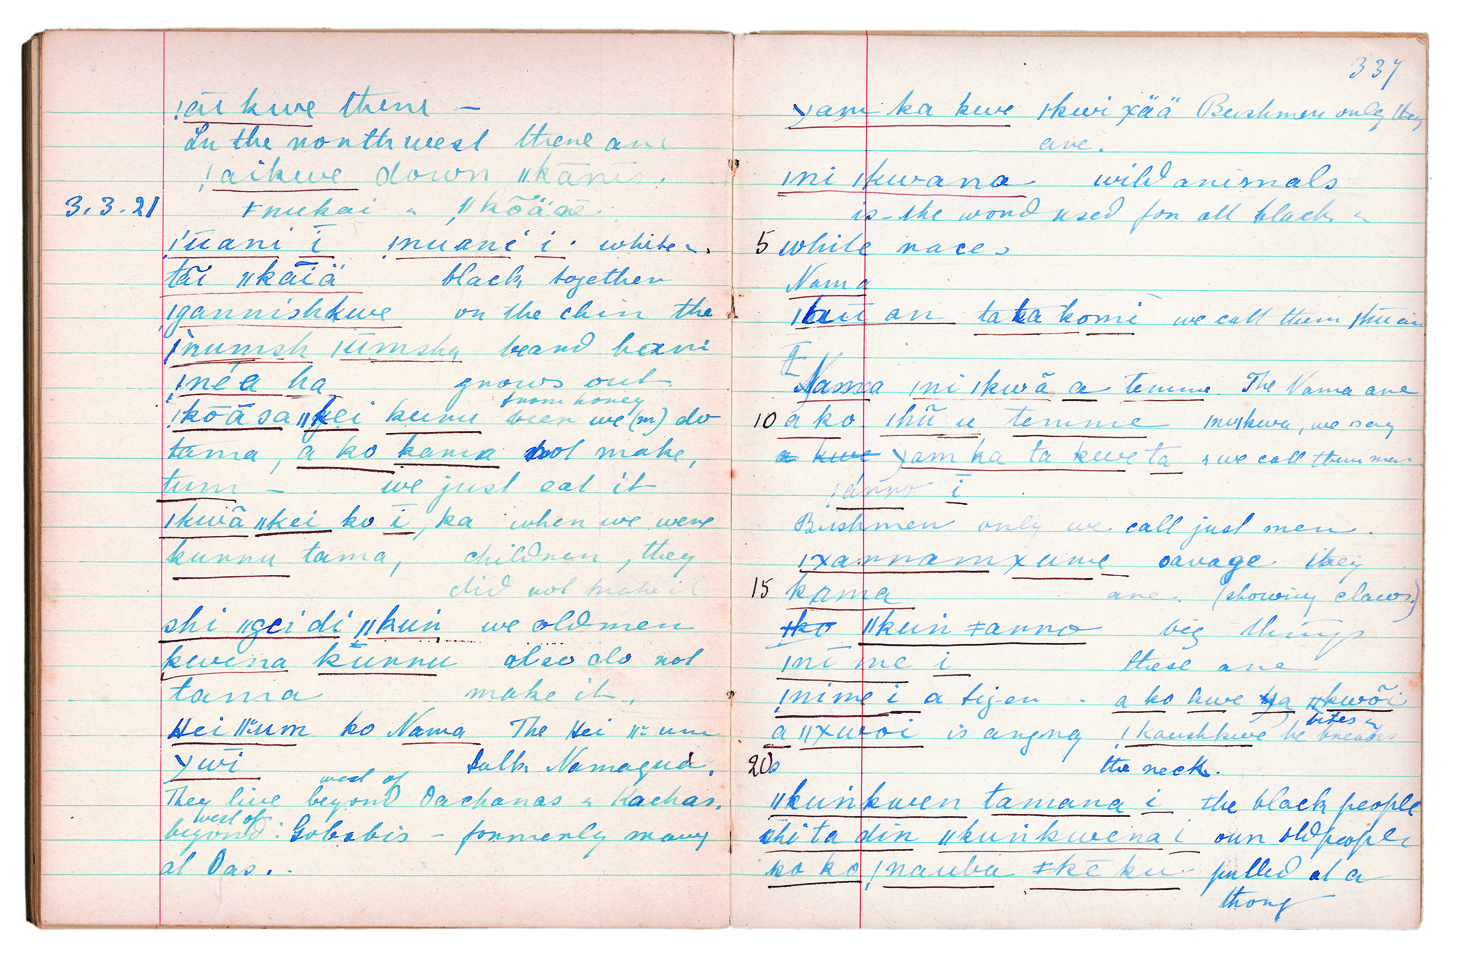 ǃāi kwe there –
In the north west there are
ǃaikwe down ǁkanis.
3.3.21 ǂnukai & ǁkõäā.
ǃūani ī ǃnuani i. white &
tāi ǁkāiä black together
ǀgannishkwe on the chin the
ǀnumsh ǀūmsha beard hairs
ǀnéa ha grows out
from honey
ǀkōāsa ǁkei kunu beer we (m) do
tama, a ko kama not make,
tum – we just eat it
ǀkwā ǁkei ko i, ka when we were
kunnu tama, children, they
did not make it
shi ǁgeidi ǁkun we old men
kwena kūnnu also do not
tama make it
Hei ǁum ko Nama The Hei ǁum
χwi talk Namaqua.
west of
They live beyond Oachanas & Kachas.
west of
beyond: Gobabis – formerly many
at Oas.
337
χam ka kwe ǀkwi χää Bushmen only they
are.
ǀni ǀkwana wild animals
is the word used for all black &
5 white races
Nama
ǀkūī an taka komi we call them ǀkūān
Nama ǀni ǀkwā a temme. The Nama are
10 a ko ǀhū u temme ǀniǀkwa, we say
a kwe χam ka ta kwe ta & we call them men
ǀanno i
Bushmen only we call just men.
ǀχannamχume savage they
15 kama are. (showing claws)
ǀko ǁkuṅ ǂanno big things
ǀni ne i these are
ǀnime i a tiger - a ko kwe ka ǁkwõi
bites &
a ǁχwoi is angry ǀkaushkwe he breaks
20 the neck.
ǁkuṅkwen tamana i the black people
shi ta din ǁkuṅkwena i our old people
ko ko ǀnauba ǂkē ku pulled at a
thong